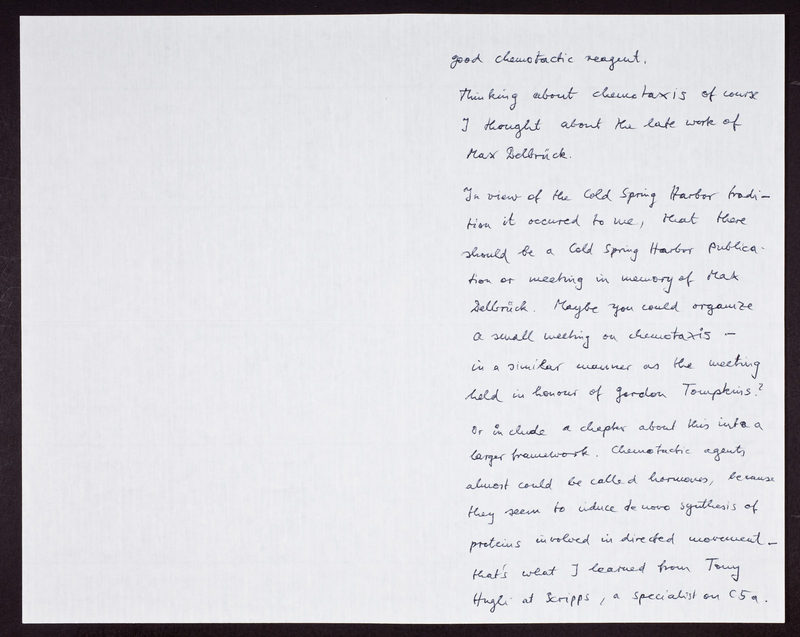 good chemotactic reagent.
Thinking about chemotaxis of course
I thought about the late work of
Max Delbrück.
In view of the Cold Spring Harbor tradi-
tion it occured to me, that there
should be a Cold Spring Harbor publica-
tion or meeting in memory of Max
Delbrück. Maybe you could organize
a small meeting on chemotaxis –
in a similar manner as the meeting
held in honour of Gordon Tompkins?
Or include a chapter about this into a
larger framework. Chemotactic agents
almost could be called hormones, because
they seem to induce de novo synthesis of
proteins involved in directed movement –
that's what I learned from Tony
Hugli at Scripps, a specialist on C5a.